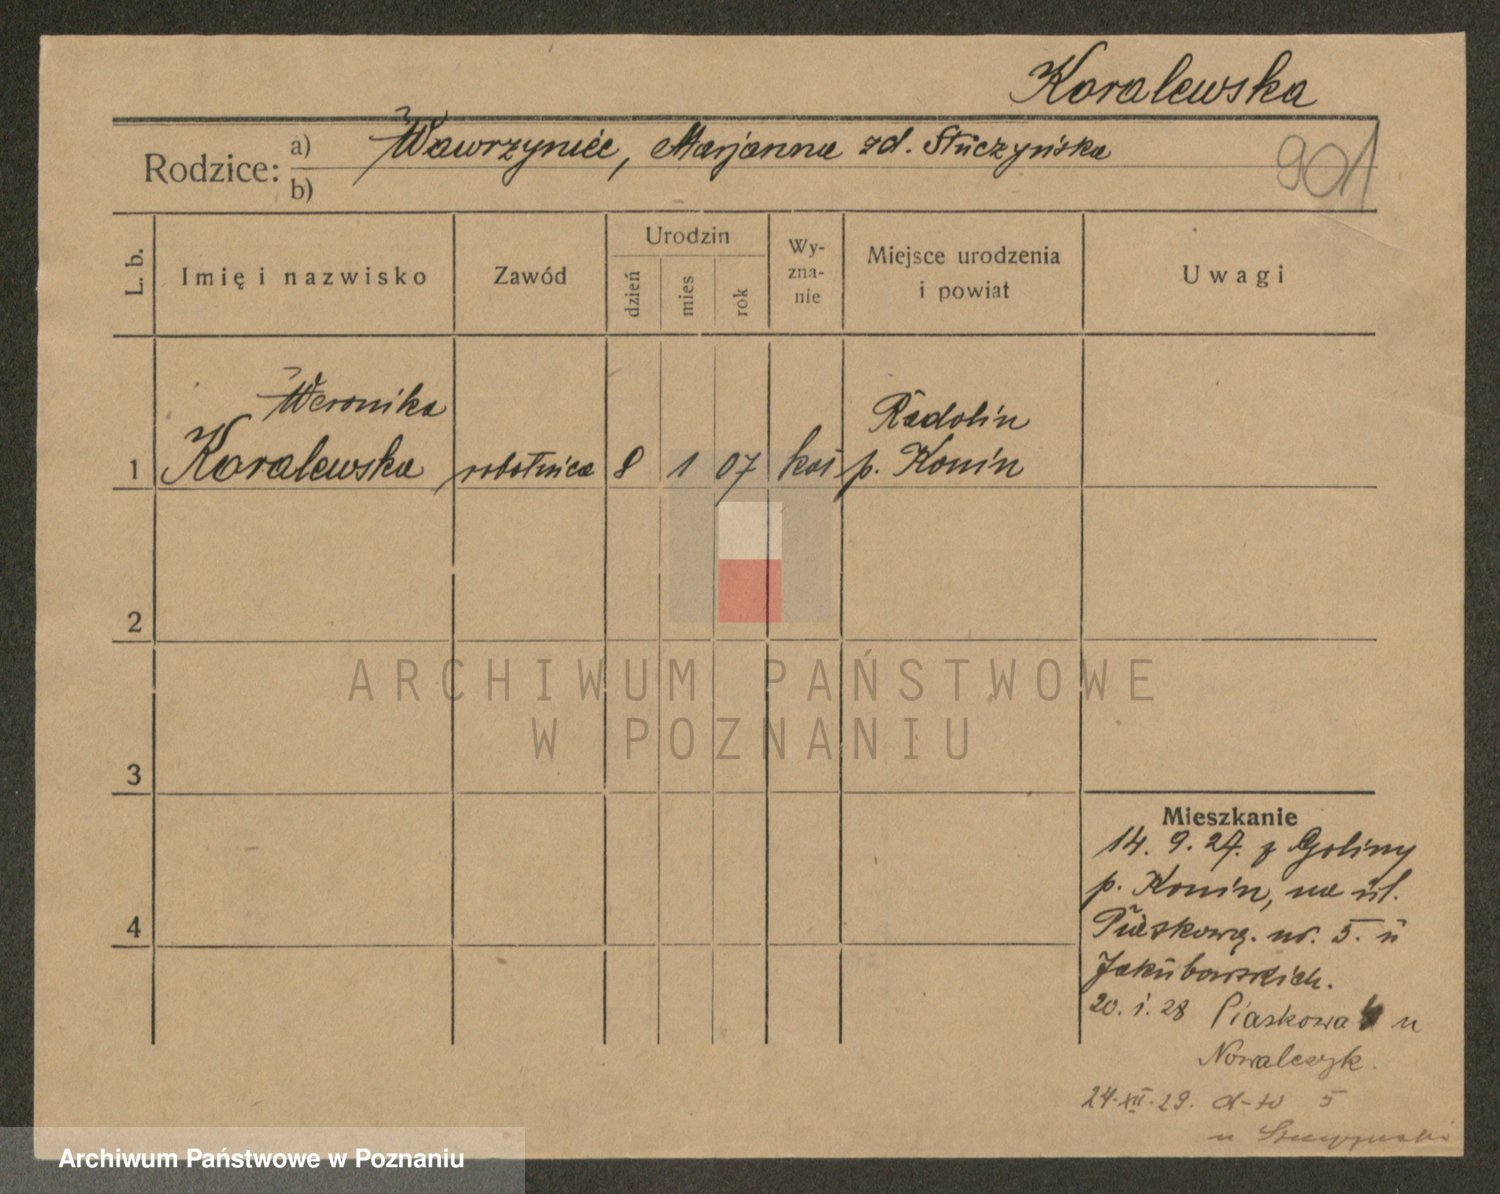 Koralewska
Rodzice: a) Wawrzyniec, Marjanna zd. Stuczyńska
b)
901
L. b.
Imię i nazwisko
Zawód
Urodzin
dzień
mies
rok
Wy-
zna-
nie
Miejsce urodzenia
i powiat
Uwagi
Weronika
Radolin
1 Koralewska robotnica 8 1 07 p. Konin
2
3
4
Mieszkanie
14. 9. 27. z Goliny
p. Konin, na ul.
Piaskową. nr. 5. u
Jakubowskich.
20. 1. 28 Piaskowa u
Nowalczyk.
24. XII. 29. d-to 5
u
ARCHIWUM PAŃSTWOWE
W POZNANIU
Archiwum Państwowe w Poznaniu